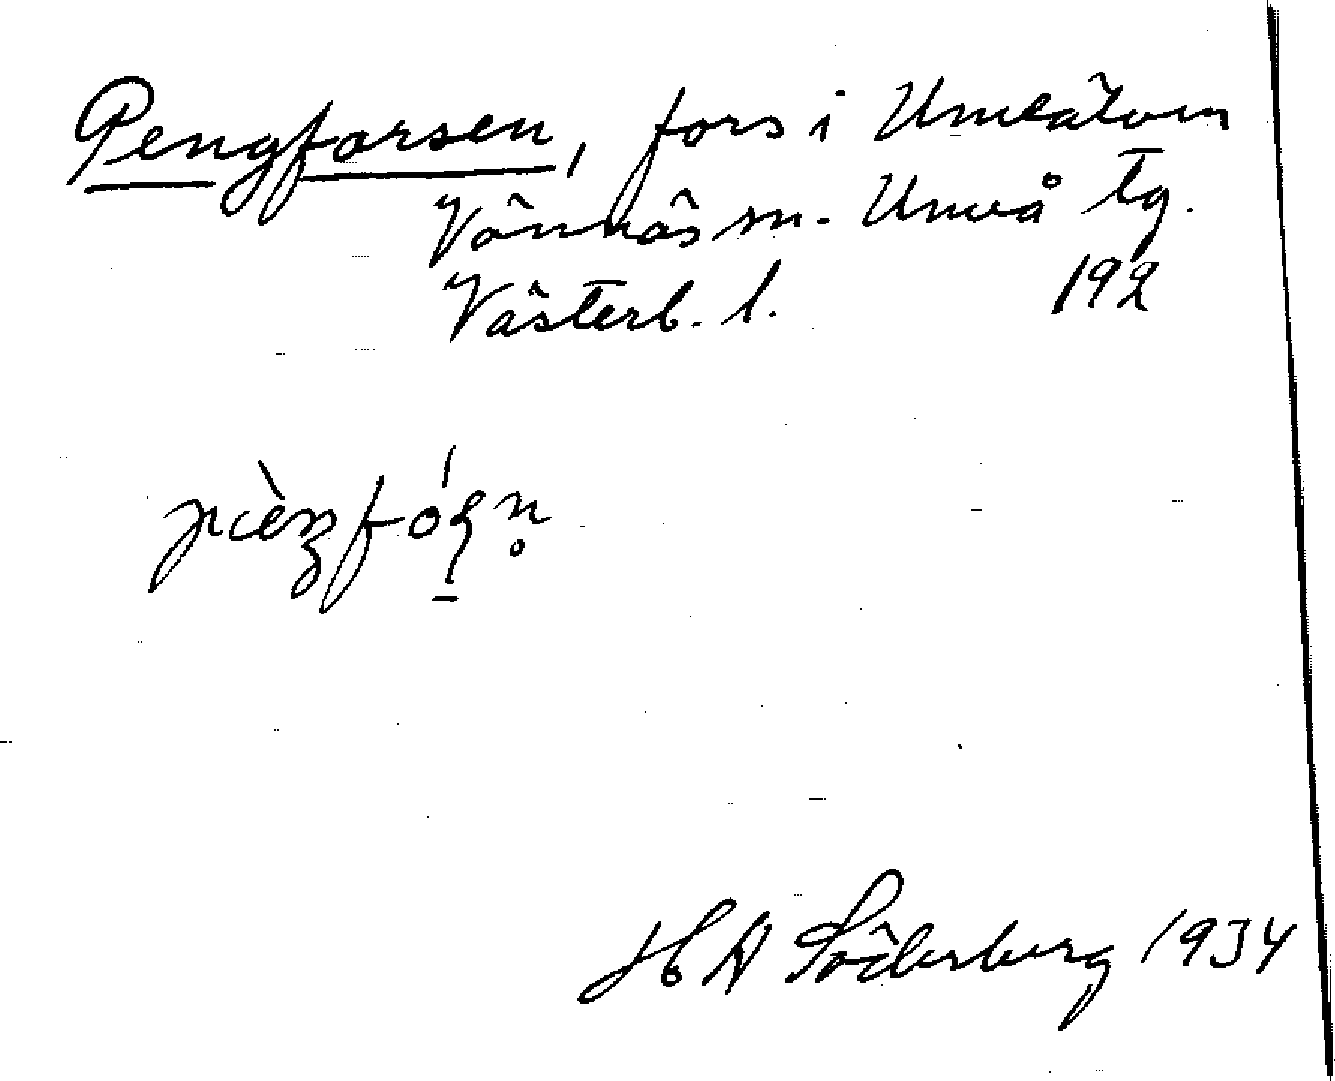 Pengforsen, fors i Umeälven
Vännäs sn. Umeå tg.
Västerb. l. 192
H A Söderberg 1934